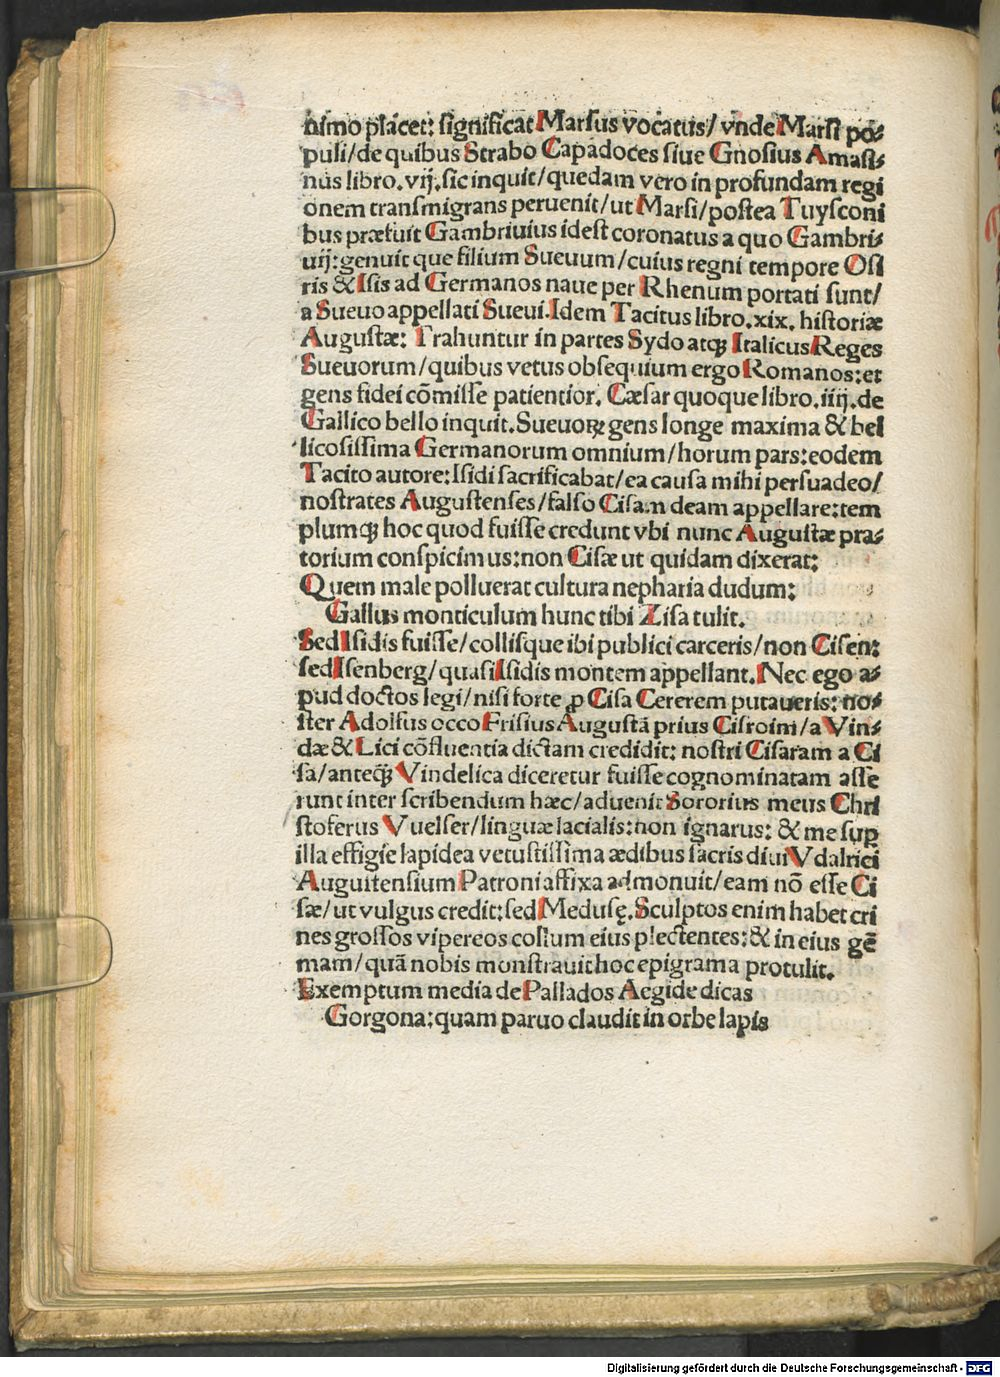 nimo placet: significat Marsus vocatus/ vnde Marsi po⸗
puli/de quibus Strabo Capadoces siue Gnosius Amasi⸗
nus libro.vij.sic inquit/quedam vero in profundam regi
onem transmigrans peruenit/ut Marsi/postea Tuysconi
bus præfuit Gambriuius idest coronatus a quo Gambri⸗
uij:genuit que filium Sueuum/cuius regni tempore Osi
ris & Isis ad Germanos naue per Rhenum portati sunt/
a Sueuo appellati Sueui.Idem Tacitus libro.xix. historiæ
Augustæ: Trahuntur in partes Sydo atqꝫ Italicus Reges
Sueuorum/quibus vetus obsequium ergo Romanos:et
gens fidei cõmisse patientior. Cæsar quoque libro.iiij.de
Gallico bello inquit.Sueuoꝝ gens longe maxima & bel
licosissima Germanorum omnium/horum pars:eodem
Tacito autore:Isidi sacrificabat/ea causa mihi persuadeo/
nostrates Augustenses/falso Cisam deam appellare:tem
plumqꝫ hoc quod fuisse credunt vbi nunc Augustæ præ⸗
torium conspicimus:non Cisæ ut quidam dixerat:
Quem male polluerat cultura nepharia dudum:
Gallus monticulum hunc tibi Zisa tulit.
Sed Isidis fuisse/collisque ibi publici carceris/non Cisen:
sed Isenberg/quasi Isidis montem appellant.Nec ego a⸗
pud doctos legi/nisi forte ꝓ Cisa Cererem putaueris: no⸗
ster Adolfus occo Frisius Augustã prius Cisroim/a Vin⸗
dæ & Lici cõfluentia dictam credidit: nostri Cisaram a Ci
sa/anteqꝫ Vindelica diceretur fuisse cognominatam asse
runt inter scribendum hæc/aduenit Sororius meus Chri
stoferus Vuelser/linguæ lacialis:non ignarus: & me suꝑ
illa effigie lapidea vetustissima ædibus sacris diui Vdalrici
Augustensium Patroni affixa admonuit/eam nõ esse Ci
sæ/ut vulgus credit:sed Medusę.Sculptos enim habet cri
nes grossos vipereos collum eius plectentes:& in eius gē
mam/quã nobis monstrauit hoc epigrama protulit.
Exemptum media de Pallados Aegide dicas
Gorgona:quam paruo claudit in orbe lapis
Digitalisierung gefördert durch die Deutsche Forschungsgemeinschaft - DFG